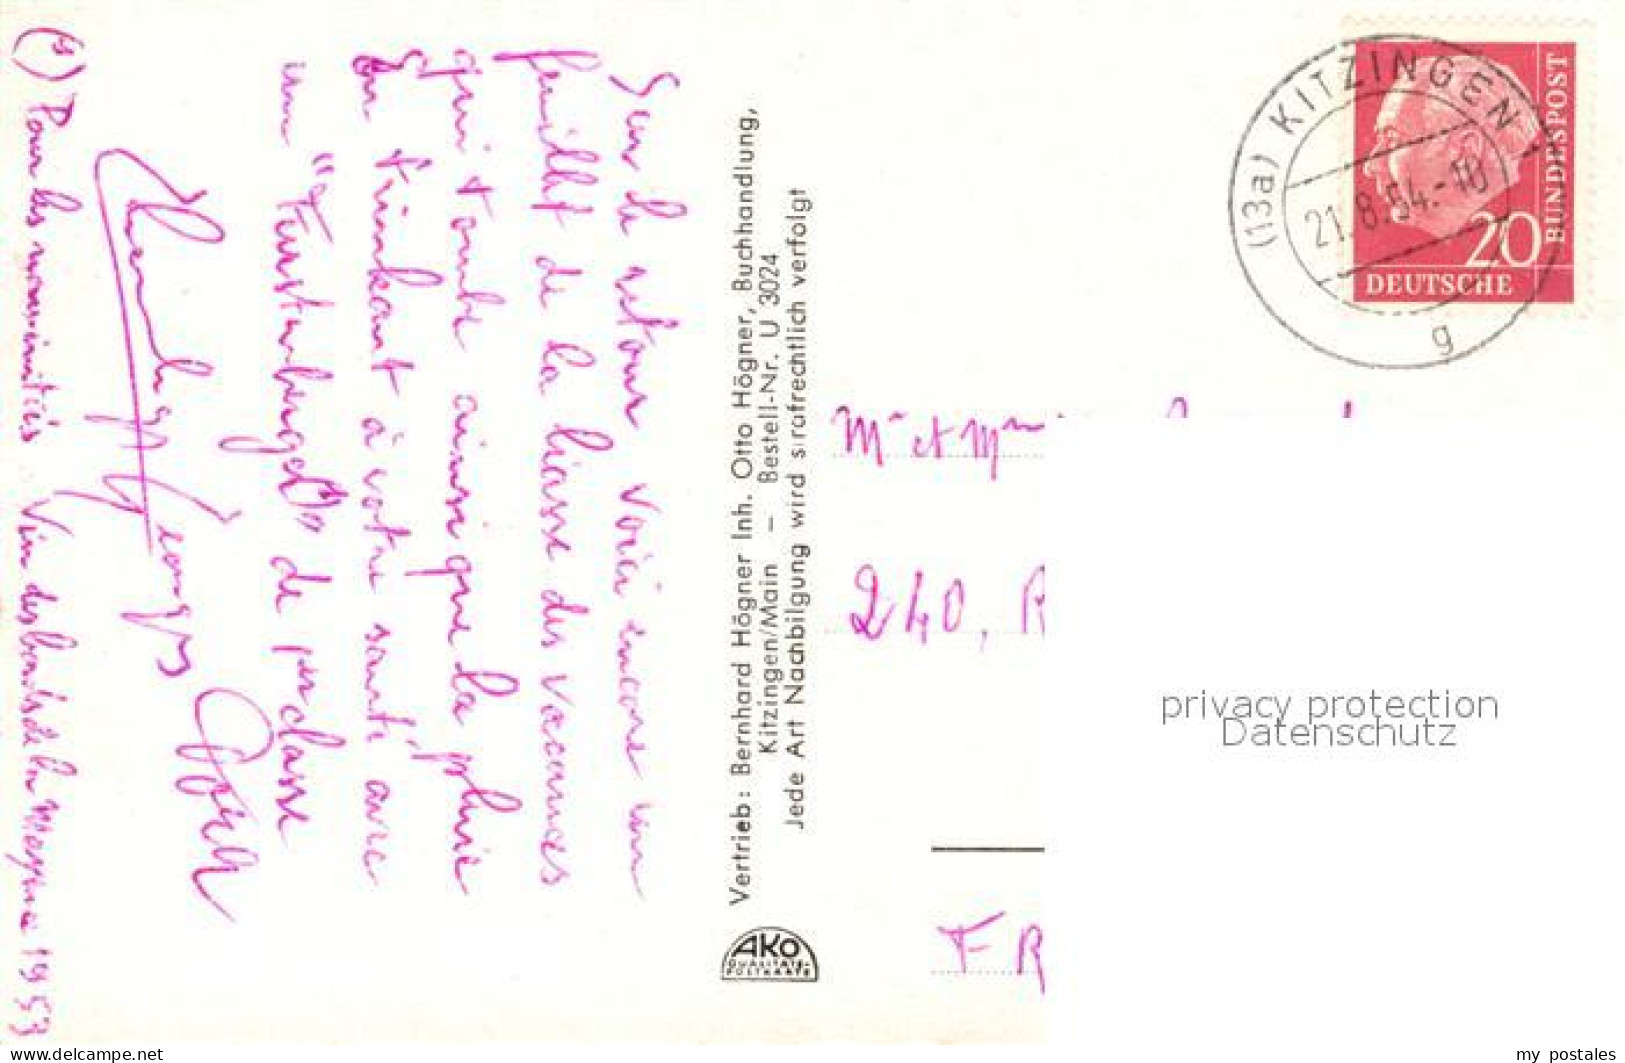 Sur le retour voici encore un
feuillet de la liasse des vacances
qui tombe ainsi que la pluie
En trinkant à votre santé avec
un "Fürstenberger(1)" de per classe
Georges
(1) Pour les non initiés Vin des bords de la 1953
Vertrieb: Bernhard Högner Inh. Otto Högner, Buchhandlung,
Kitzingen/Main — Bestell-Nr. U 3024
Jede Art Nachbilgung wird strafrechtlich verfolgt
AKO
QUALITÄTS-
POSTKARTE
(13a) KITZINGEN
21.8.54.-10
g
20
DEUTSCHE
BUNDESPOST
Mr et Mme
240, R
FR
privacy protection
Datenschutz
www.delcampe.net
my_postales